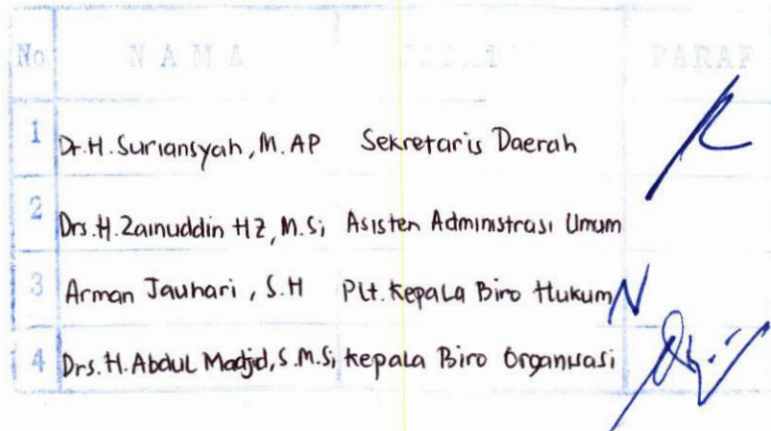 No N A M A PARAF
1 Dr.H.Suriansyah, M.AP Sekretaris Daerah
2 Drs.H.Zainuddin HZ, M.Si Asisten Administrasi Umum
3 Arman Jauhari, S.H Plt.Kepala Biro Hukum
4 Drs.H.Abdul Madjid, S.M.Si Kepala Biro Organisasi